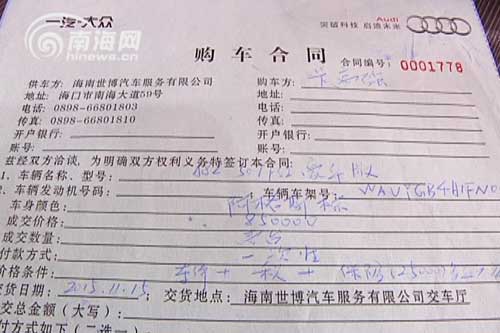 一汽-大众
南海网
hinews.cn
Audi
突破科技 启迪未来
购车合同
合同编号: 0001778
供车方: 海南世博汽车服务有限公司 购车方:
地址: 海口市南海大道59号 地址:
电话: 0898-66801803 电话:
传真: 0898-66801810 传真:
开户银行: 开户银行:
账号: 账号:
兹经双方洽谈, 为明确双方权利义务特签订本合同:
1. 车辆名称、型号:
2. 车辆发动机号码: 车辆车架号:
车身颜色:
成交价格: 850000
成交数量: 壹台
付款方式: 一次性
价格条件: 车价 + 税 + 保险(25000)
交货日期: 2015.11.15 交货地点: 海南世博汽车服务有限公司交车厅
交总金额(大写)
付方式如下(二选一)